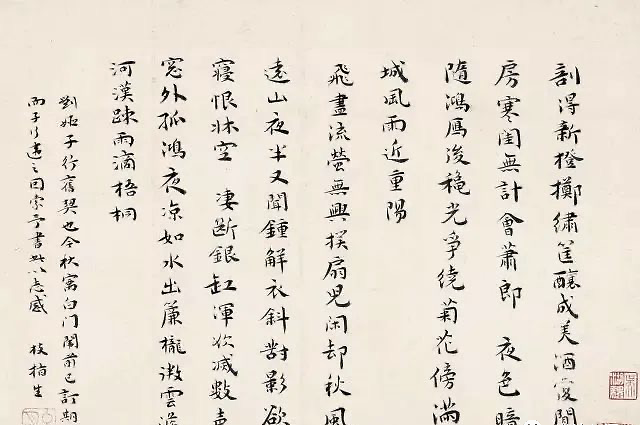 剖得新橙擲繡筐釀成美酒
房寒閨無計會蕭郎 夜色暗
隨鴻鴈後穐光爭繞菊花傍滿
城風雨近重陽
飛盡流螢無興撲扇兒閑却秋風
遠山夜半又聞鍾解衣斜對影欲
寢恨牀空 凄斷銀缸渾欲滅數聲
窓外孤鴻夜凉如水出簾櫳微雲澹
河漢踈雨滴梧桐
子行舊契也今秋寓白門闈前已訂期
而子行遺之因索予書此以志感 枝指生